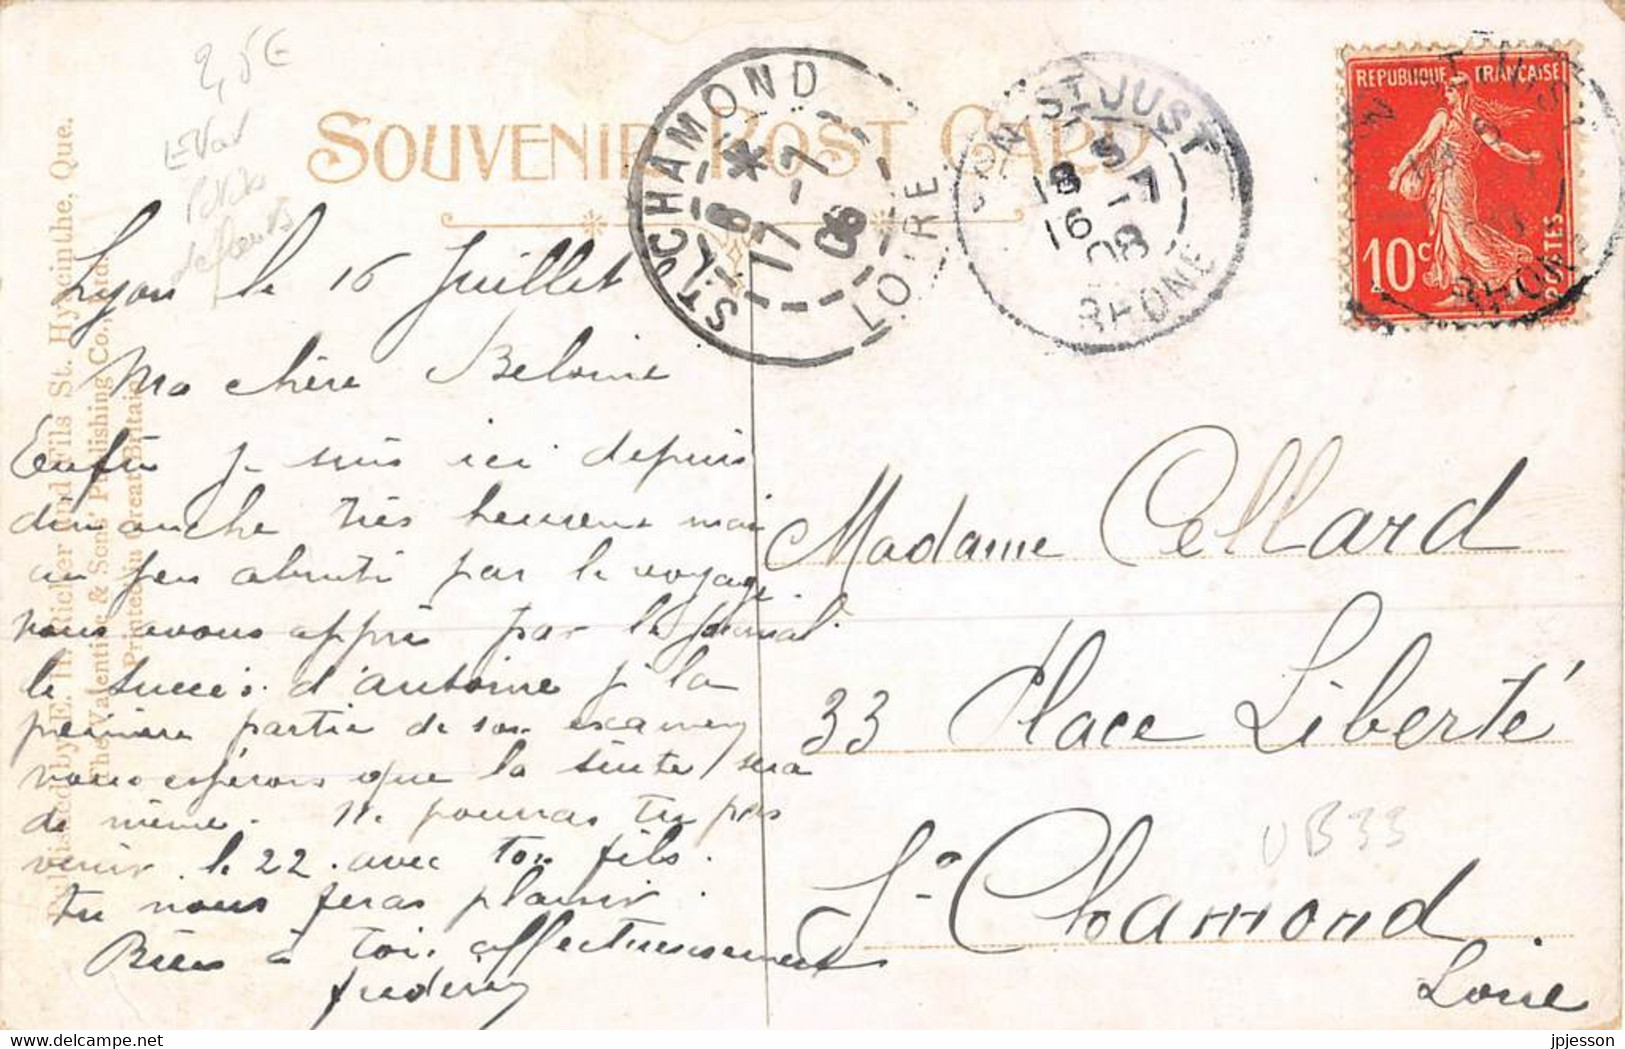 2,5€
SOUVENIR POST CARD
ST CHAMOND
LOIRE
6 * 17 - 7 08
LYON ST JUST
RHONE
18 5
16 - 7
08
REPUBLIQUE FRANÇAISE
10 c
POSTES
RHONE
Published by E. H. Richer and Fils St. Hyacinthe, Que.
The Valentine & Sons' Publishing Co., Ltd.
Printed in Great Britain
Lyon le 16 Juillet
Ma chère
Enfin je suis ici depuis
dimanche très heureuse mais
un peu abruti par le voyage
nous avons appris par le journal
le succès d'antoine p la
première partie de son examen
nous espérons que la suite sera
de même. Ne pourras tu pas
venir le 22 avec ton fils.
tu nous feras plaisir.
Bien à toi affectueusement
Madame Cellard
33 Place Liberté
St Chamond
Loire
UB33
jpjesson